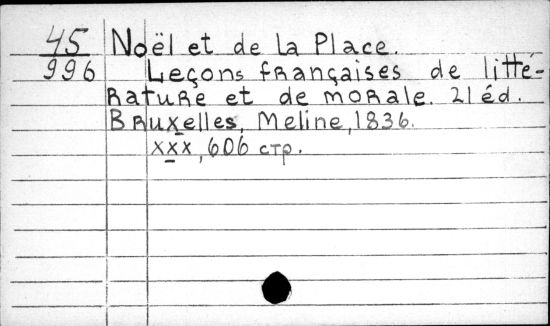 45 Noël et de la Place.
996 Leçons françaises de litté-
rature et de morale. 21 éd.
Bruxelles, Meline, 1836.
xxx, 606 стр.